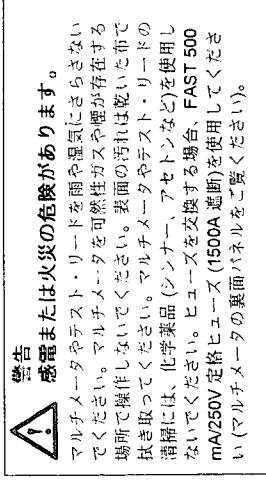 警告
感電または火災の危険があります。
マルチメータやテスト・リードを雨や湿気にさらさない
でください。マルチメータを可燃性ガスや煙が存在する
場所で操作しないでください。表面の汚れは乾いた布で
拭き取ってください。マルチメータやテスト・リードの
清掃には、化学薬品 (シンナー、アセトンなど)を使用し
ないでください。ヒューズを交換する場合、FAST 500
mA/250V 定格ヒューズ (1500A 遮断)を使用してくださ
い (マルチメータの裏面パネルをご覧ください)。